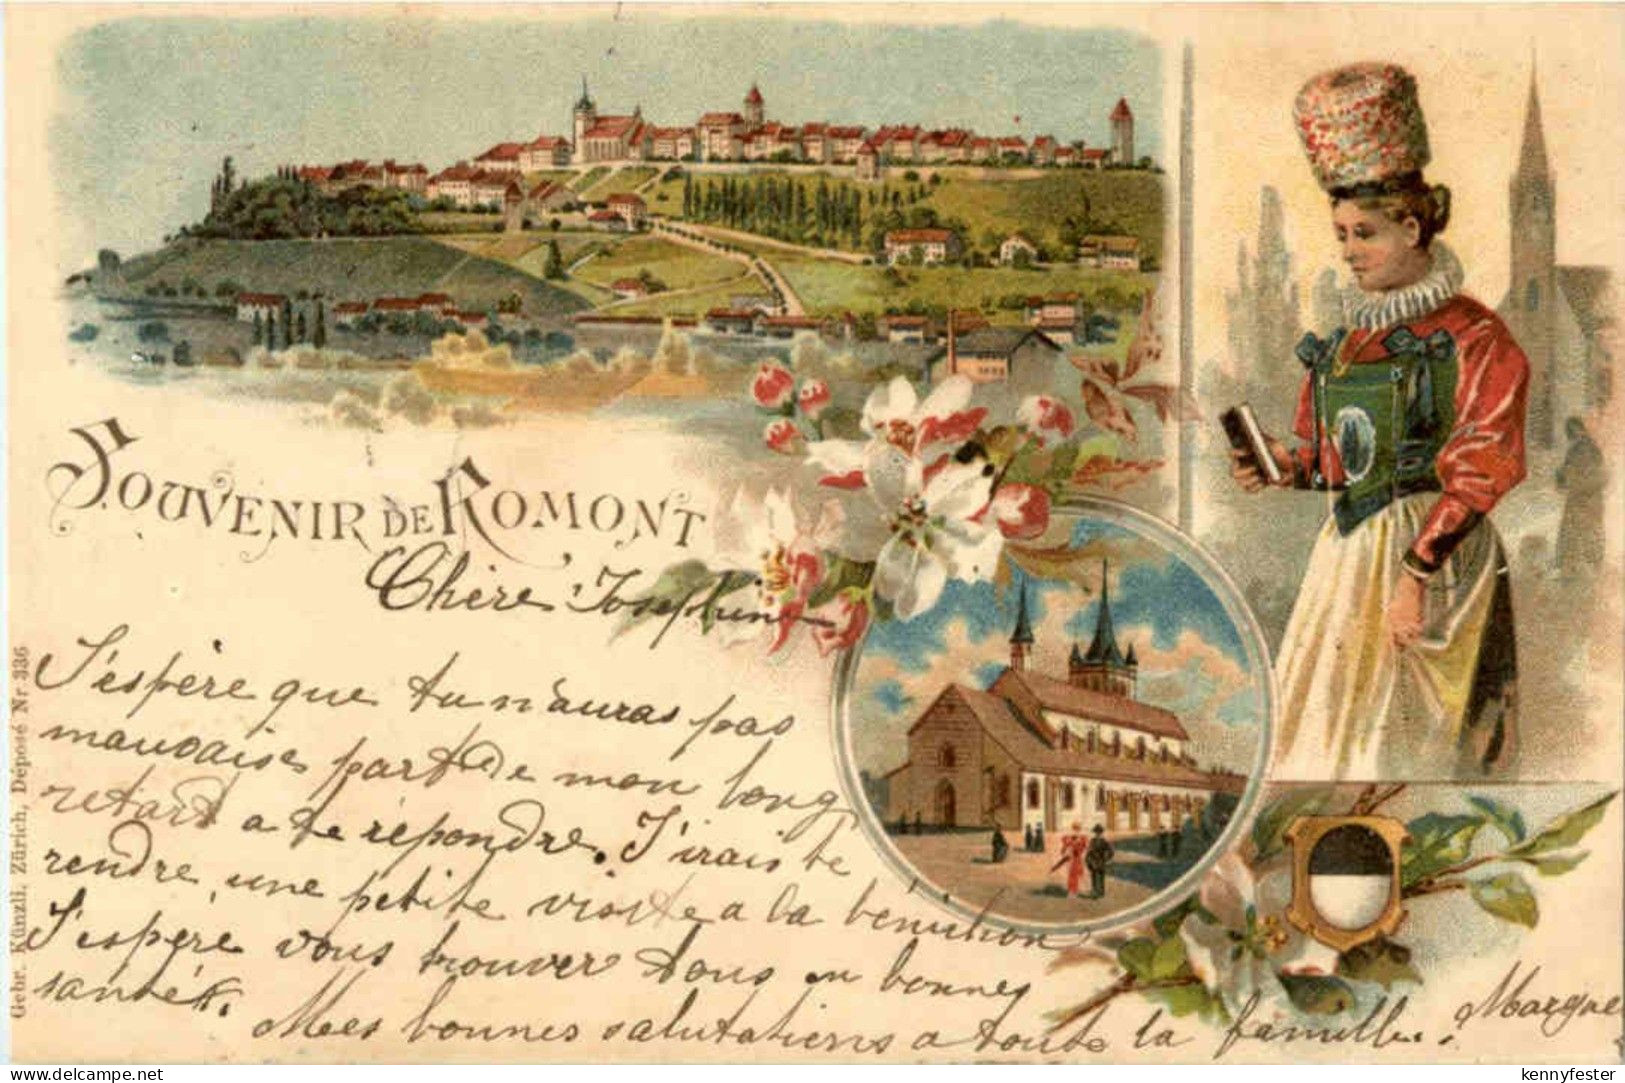 SOUVENIR DE ROMONT
Chère Josephine
J'espère que tu n'auras pas
mauvaise part de mon long
retard a te répondre. J'irais te
rendre une petite visite a la bénichon
J'espère vous trouver tous en bonnes
santés.
Mes bonnes salutations a toute la famille.
Gebr. Künzli, Zürich, Déposé Nr 336
delcampe.net
kennyfester